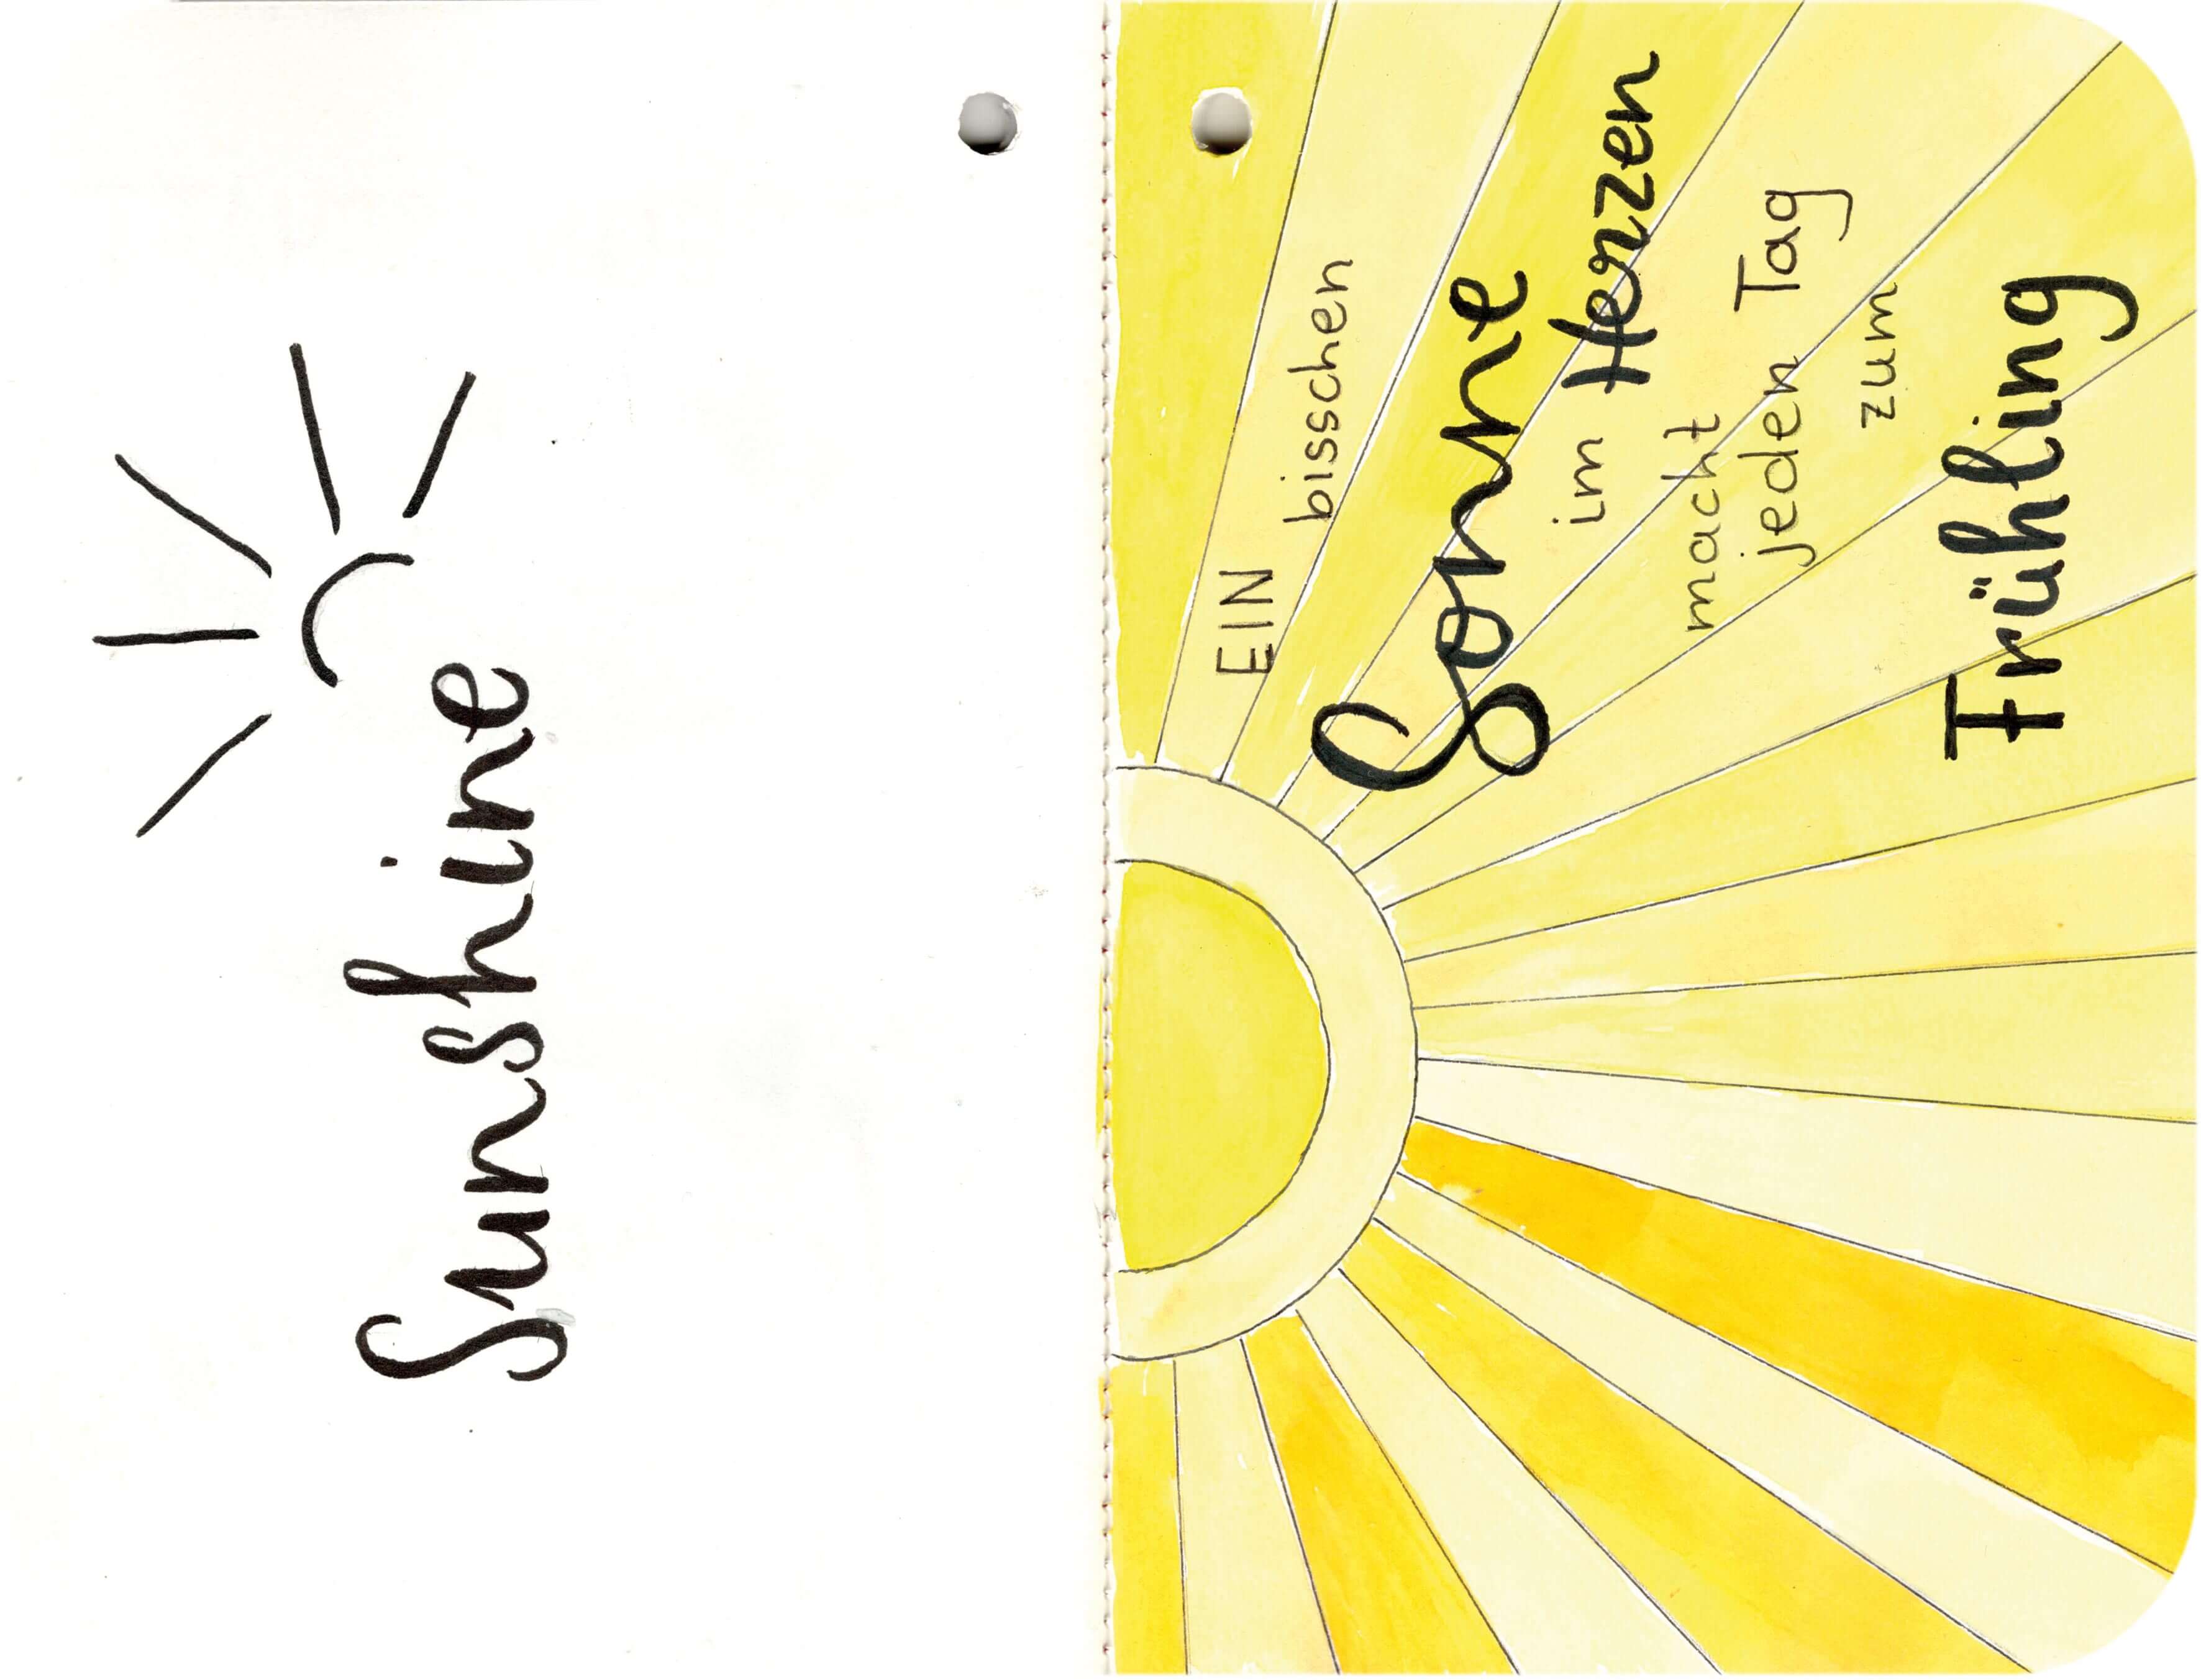 Sunshine
EIN
bisschen
Sonne
im Herzen
macht
jeden Tag
zum
Frühling